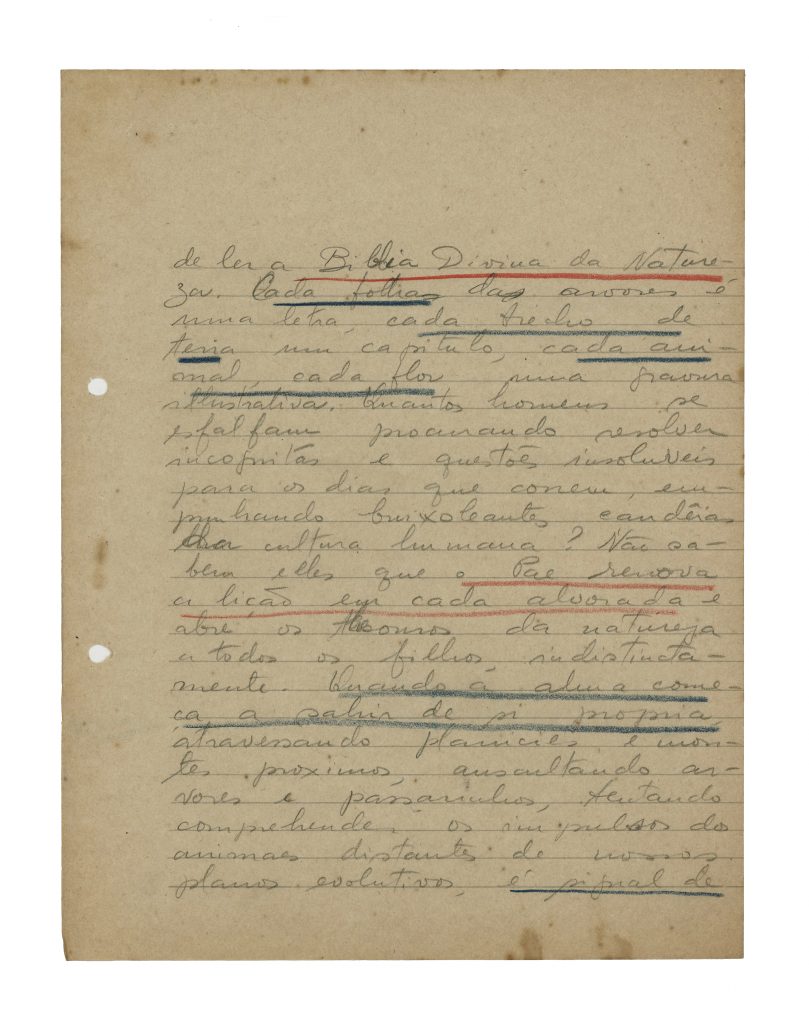 de ler a Biblia Divina da Nature-
za. Cada folha das arvores é
uma letra, cada trecho de
terra um capitulo, cada ani-
mal, cada flor uma gravura
illustrativa. Quantos homens se
esfalfam procurando resolver
incognitas e questões insoluveis
para os dias que correm, em-
punhando buxoleantes candêias
da cultura humana? Não sa-
bem elles que o Pae renova
a lição em cada alvorada e
abre os thesouros da natureza
a todos os filhos, indistincta-
mente. Quando a alma come-
ça a sahir de si propria,
atravessando planicies e mon-
tes proximos, auscultando ar-
vores e passarinhos, tentando
comprehender os impulsos dos
animaes distantes de nossos
planos evolutivos, é signal de